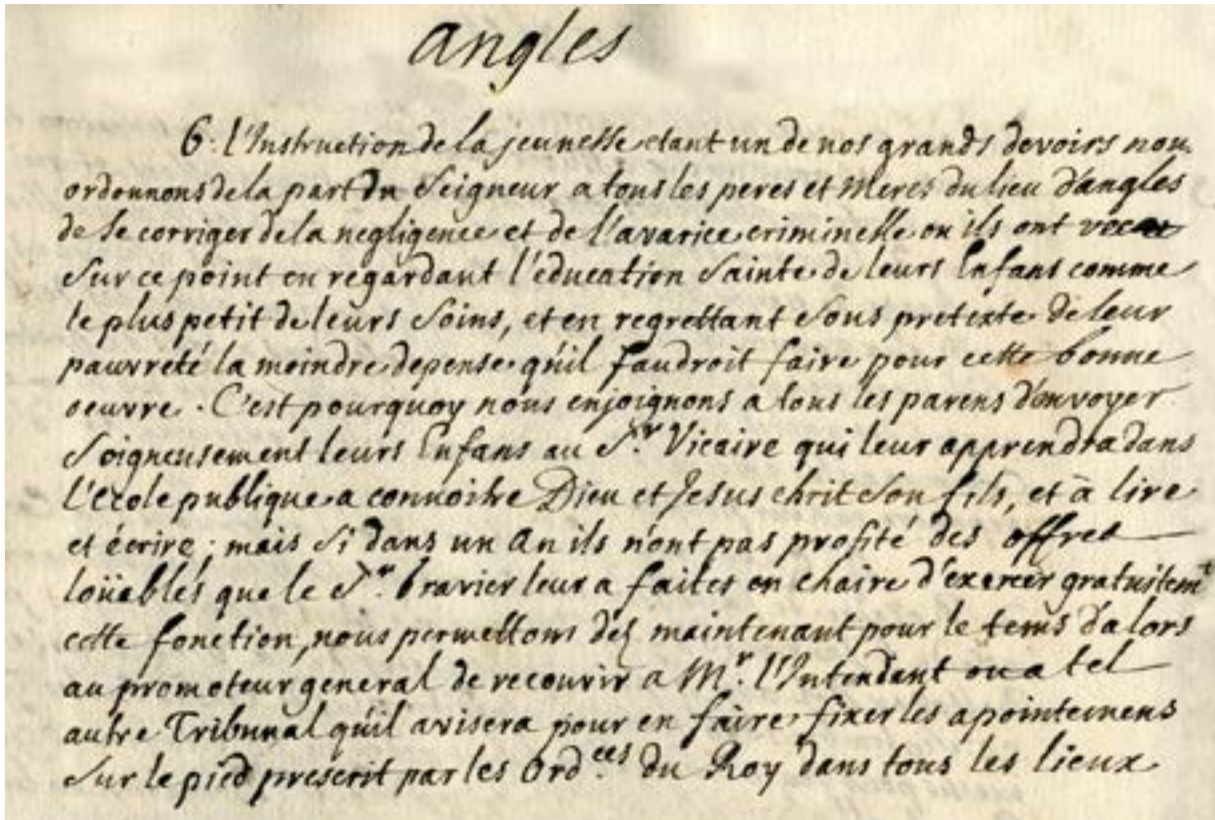 angles
6. l'Instruction de la jeunesse etant un de nos grands devoirs nou
ordonnons de la part du Seigneur a tous les peres et Meres du lieu d'angles
de se corriger de la negligence et de l'avarice criminelle ou ils ont vecu
Sur ce point en regardant l'éducation Sainte de leurs Enfans comme
le plus petit de leurs Soins, et en regrettant Sous pretexte de leur
pauvreté la moindre depense qu'il faudroit faire pour cette bonne
oeuvre. C'est pourquoy nous enjoignons a tous les parens d'envoyer
Soigneusement leurs Enfans au Sr. Vicaire qui leur apprendra dans
l'école publique a connoitre Dieu et Jesus chrit Son fils, et à lire
et écrire; mais Si dans un An ils n'ont pas profité des offres
loüables que le Sr. bravier leur a faites en chaire d'exercer gratuitemt
cette fonction, nous permettons dés maintenant pour le tems d'alors
au promoteur general de recourir a Mr. l'Intendant ou a tel
autre Tribunal qu'il avisera pour en faire fixer les apointemens
Sur le pied prescrit par les Ord.ces du Roy dans tous les lieux